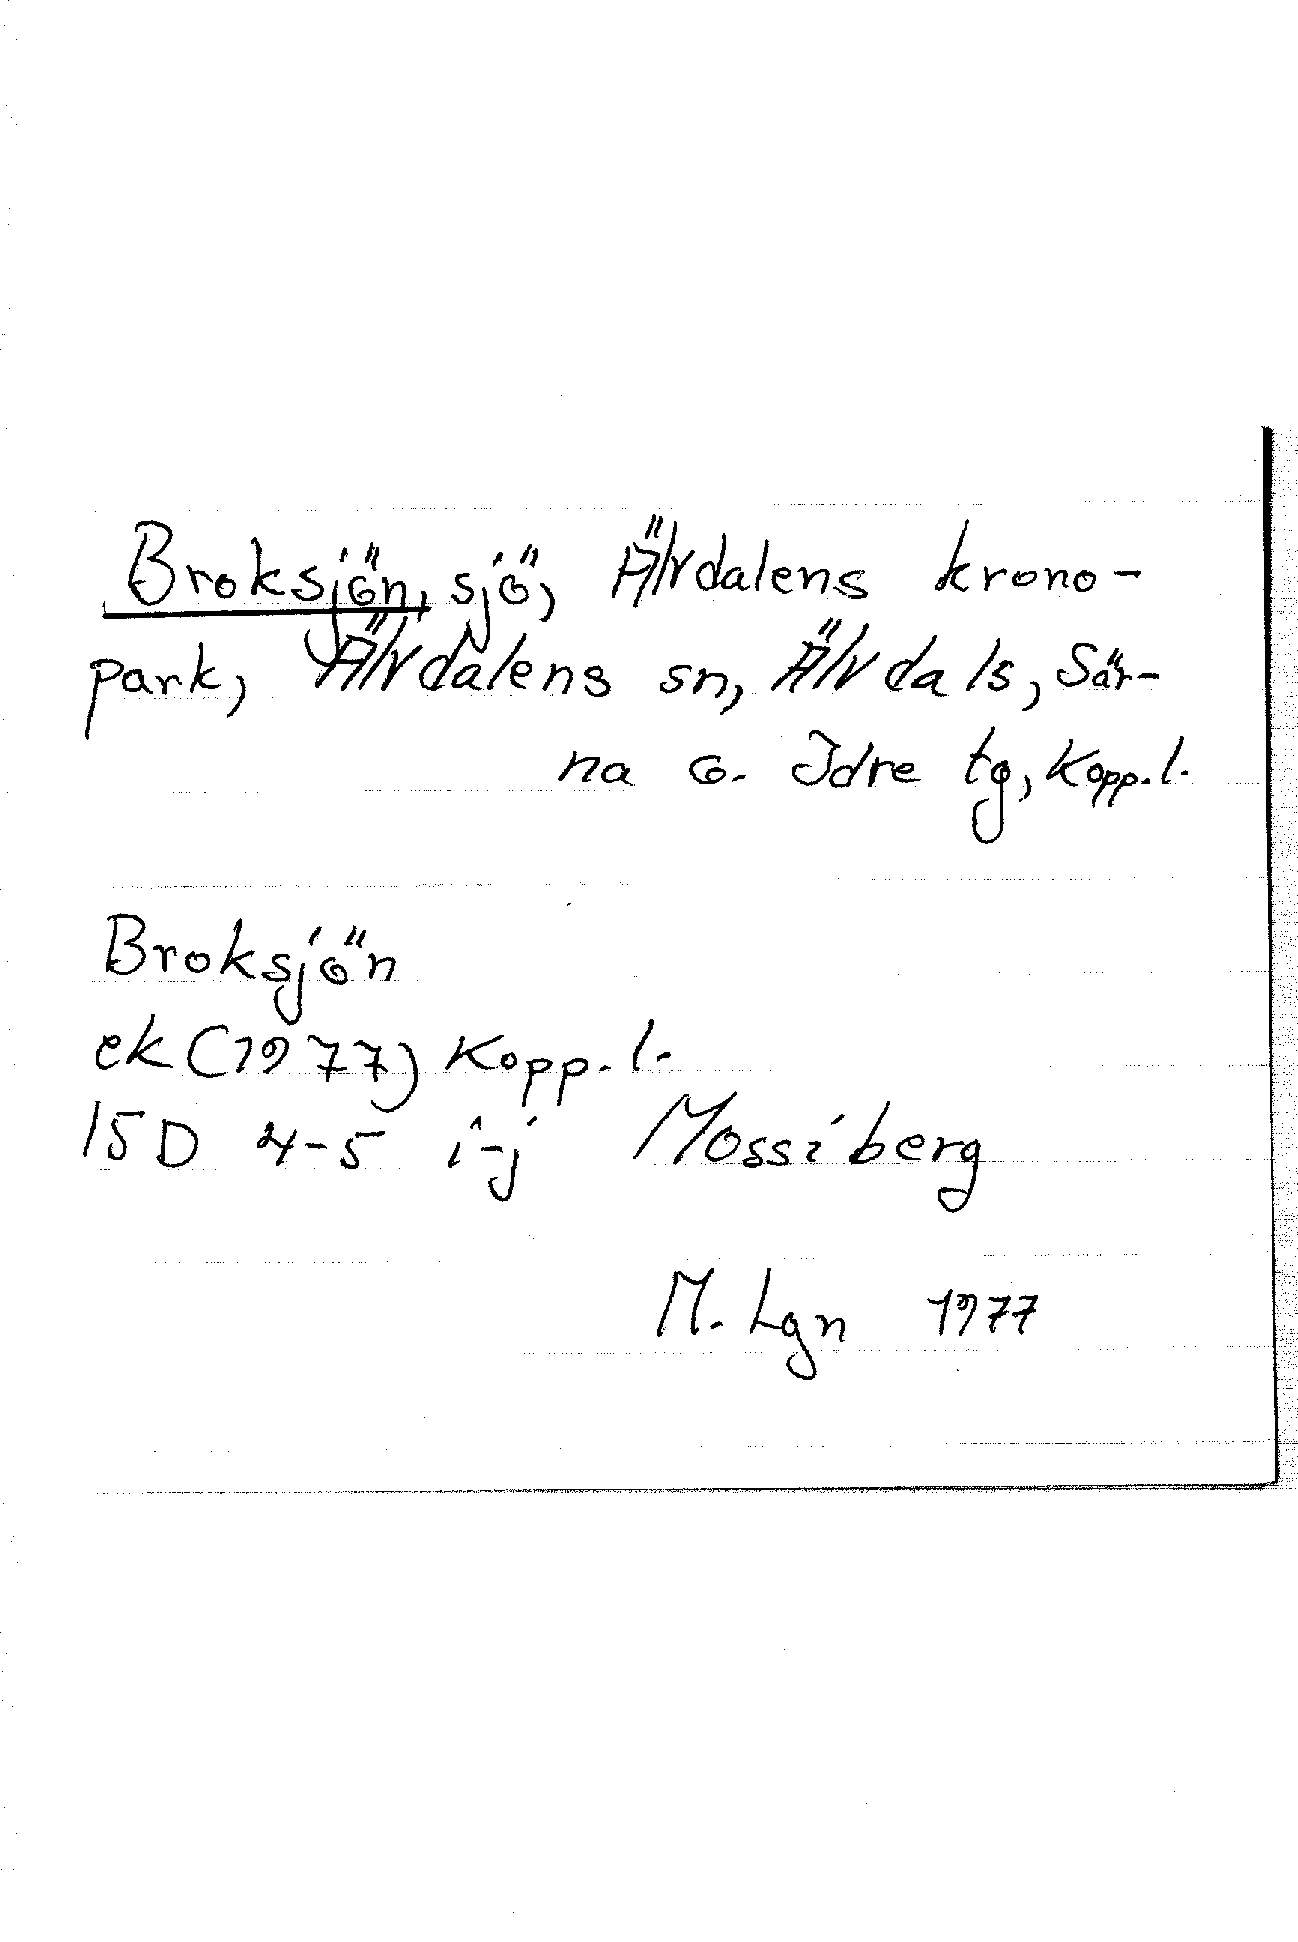 Broksjön, sjö, Älvdalens krono-
park, Älvdalens sn, Älvdals, Sär-
na o. Idre tg, Kopp. l.
Broksjön
ek (1977) Kopp. l.
15D 4-5 i-j Mossiberg
M. Lgn 1977